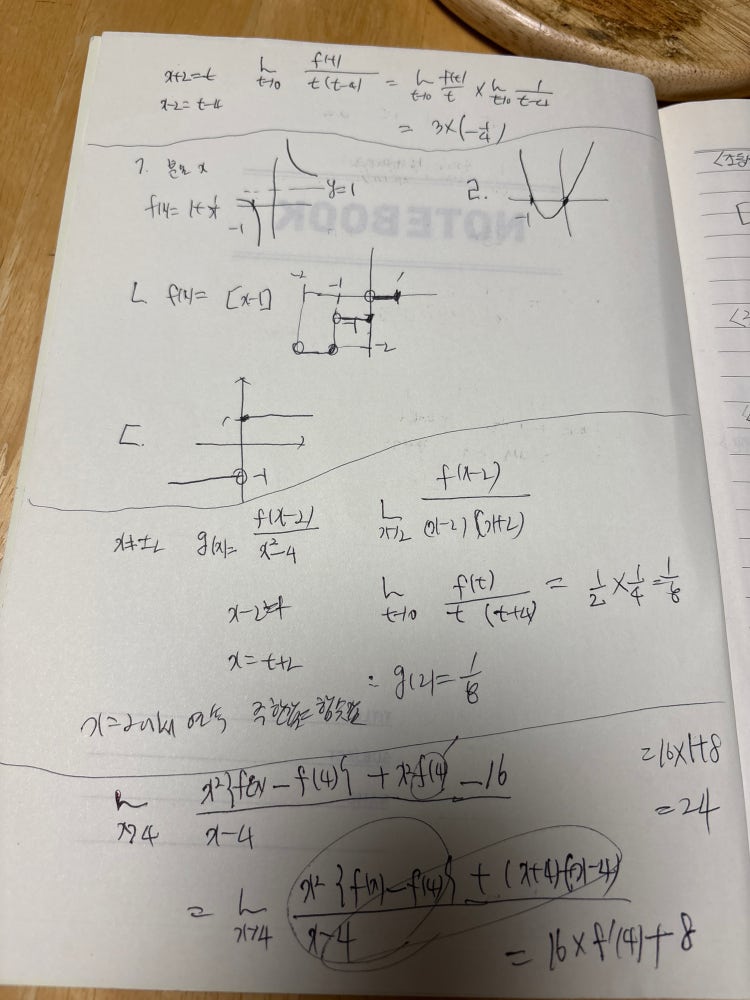 x+2=t lim t→0 f(t)/t(t-4) = lim t→0 f(t)/t × lim t→0 1/t-4
x-2=t-4
= 3×(-1/4)
f(x)= 1+1/x y=1
-1
2.
-1
ㄴ f(x)= [x-1]
-2 -1 1
-1
-2
ㄷ.
1
-1
x≠±2 g(x)= f(x-2)/x²-4 lim x→2 f(x-2)/(x-2)(x+2)
x-2=t lim t→0 f(t)/t(t+4) = 1/2 × 1/4 = 1/8
x=t+2
∴ g(2)=1/8
x=2에서 연속 극한값=함숫값
lim x→4 x²{f(x)-f(4)} + x²f(4) -16/x-4
=16×1+8
=24
= lim x→4 x²{f(x)-f(4)} + (x+4)(x-4)/x-4
= 16×f'(4)+8
NOTEBOOK